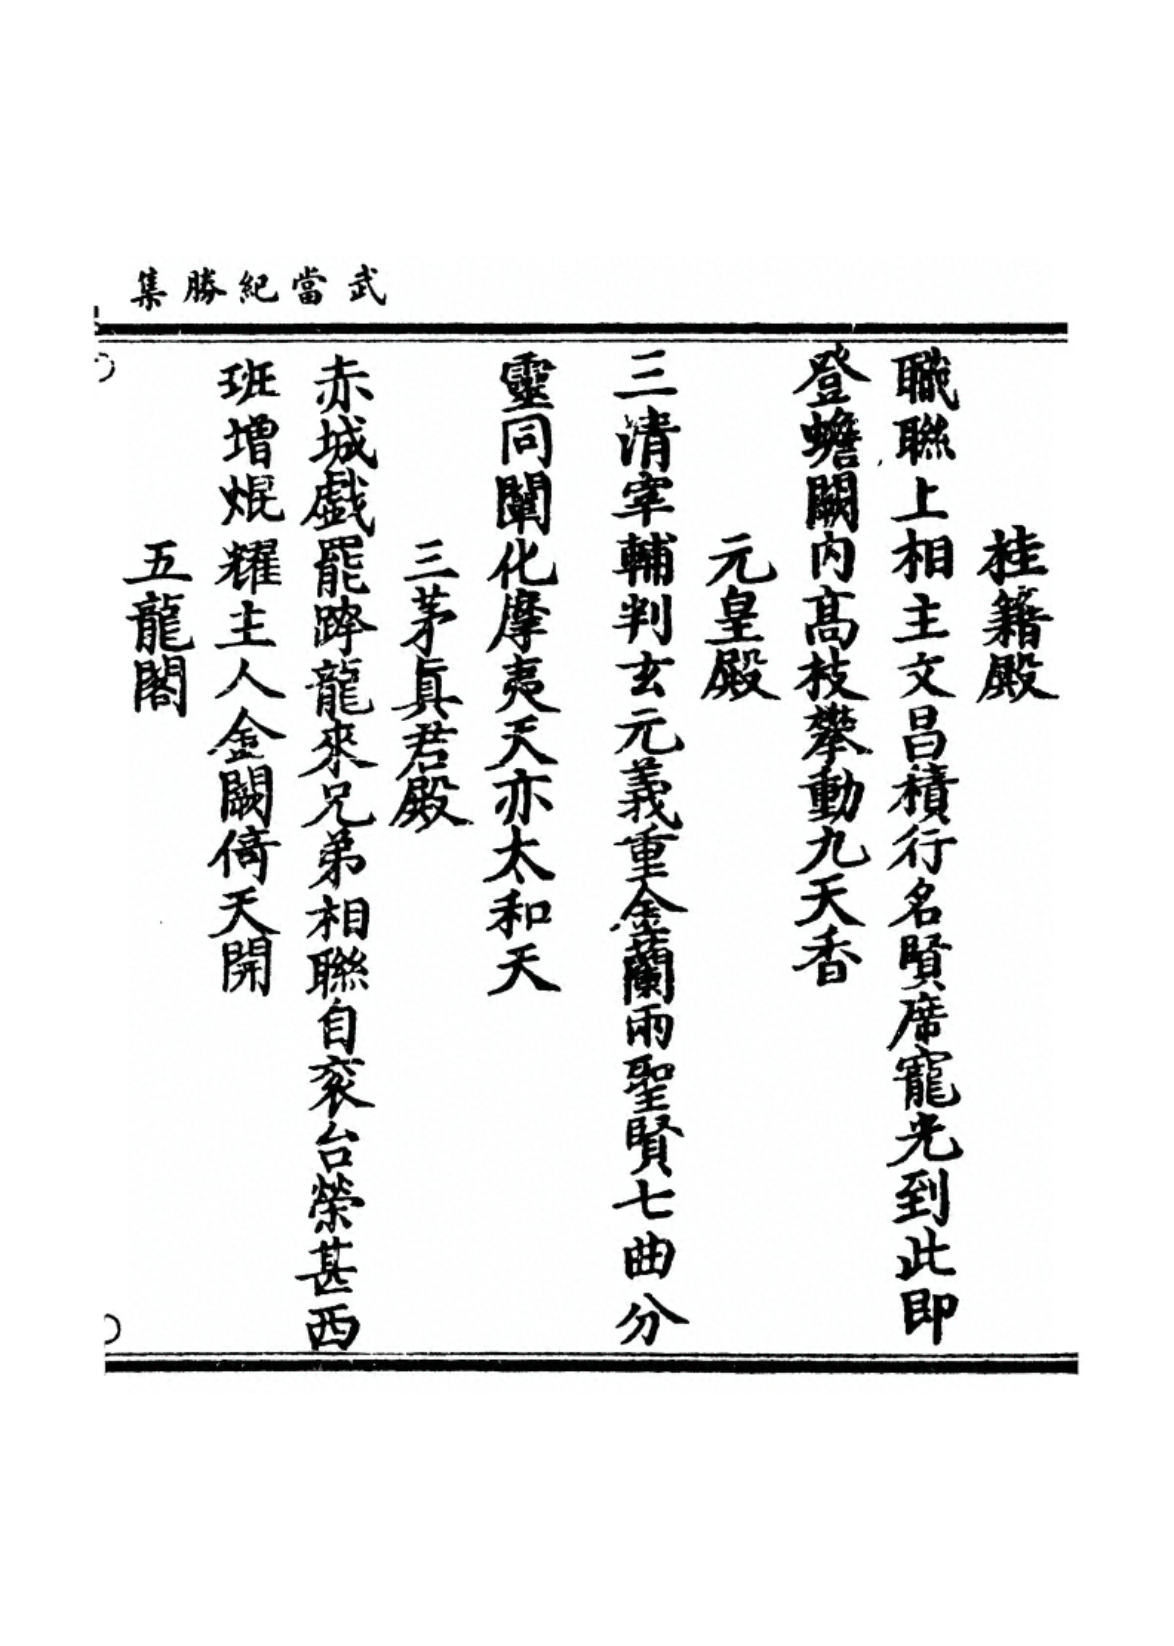 武當紀勝集
桂籍殿
職聯上相主文昌積行名賢席寵光到此即
登蟾闕內高枝攀動九天香
元皇殿
三清宰輔判玄元義重金蘭兩聖賢七曲分
靈同闡化摩夷天亦太和天
三茅眞君殿
赤城戲罷跨龍來兄弟相聯自衮台榮甚西
班增焜耀主人金闕倚天開
五龍閣